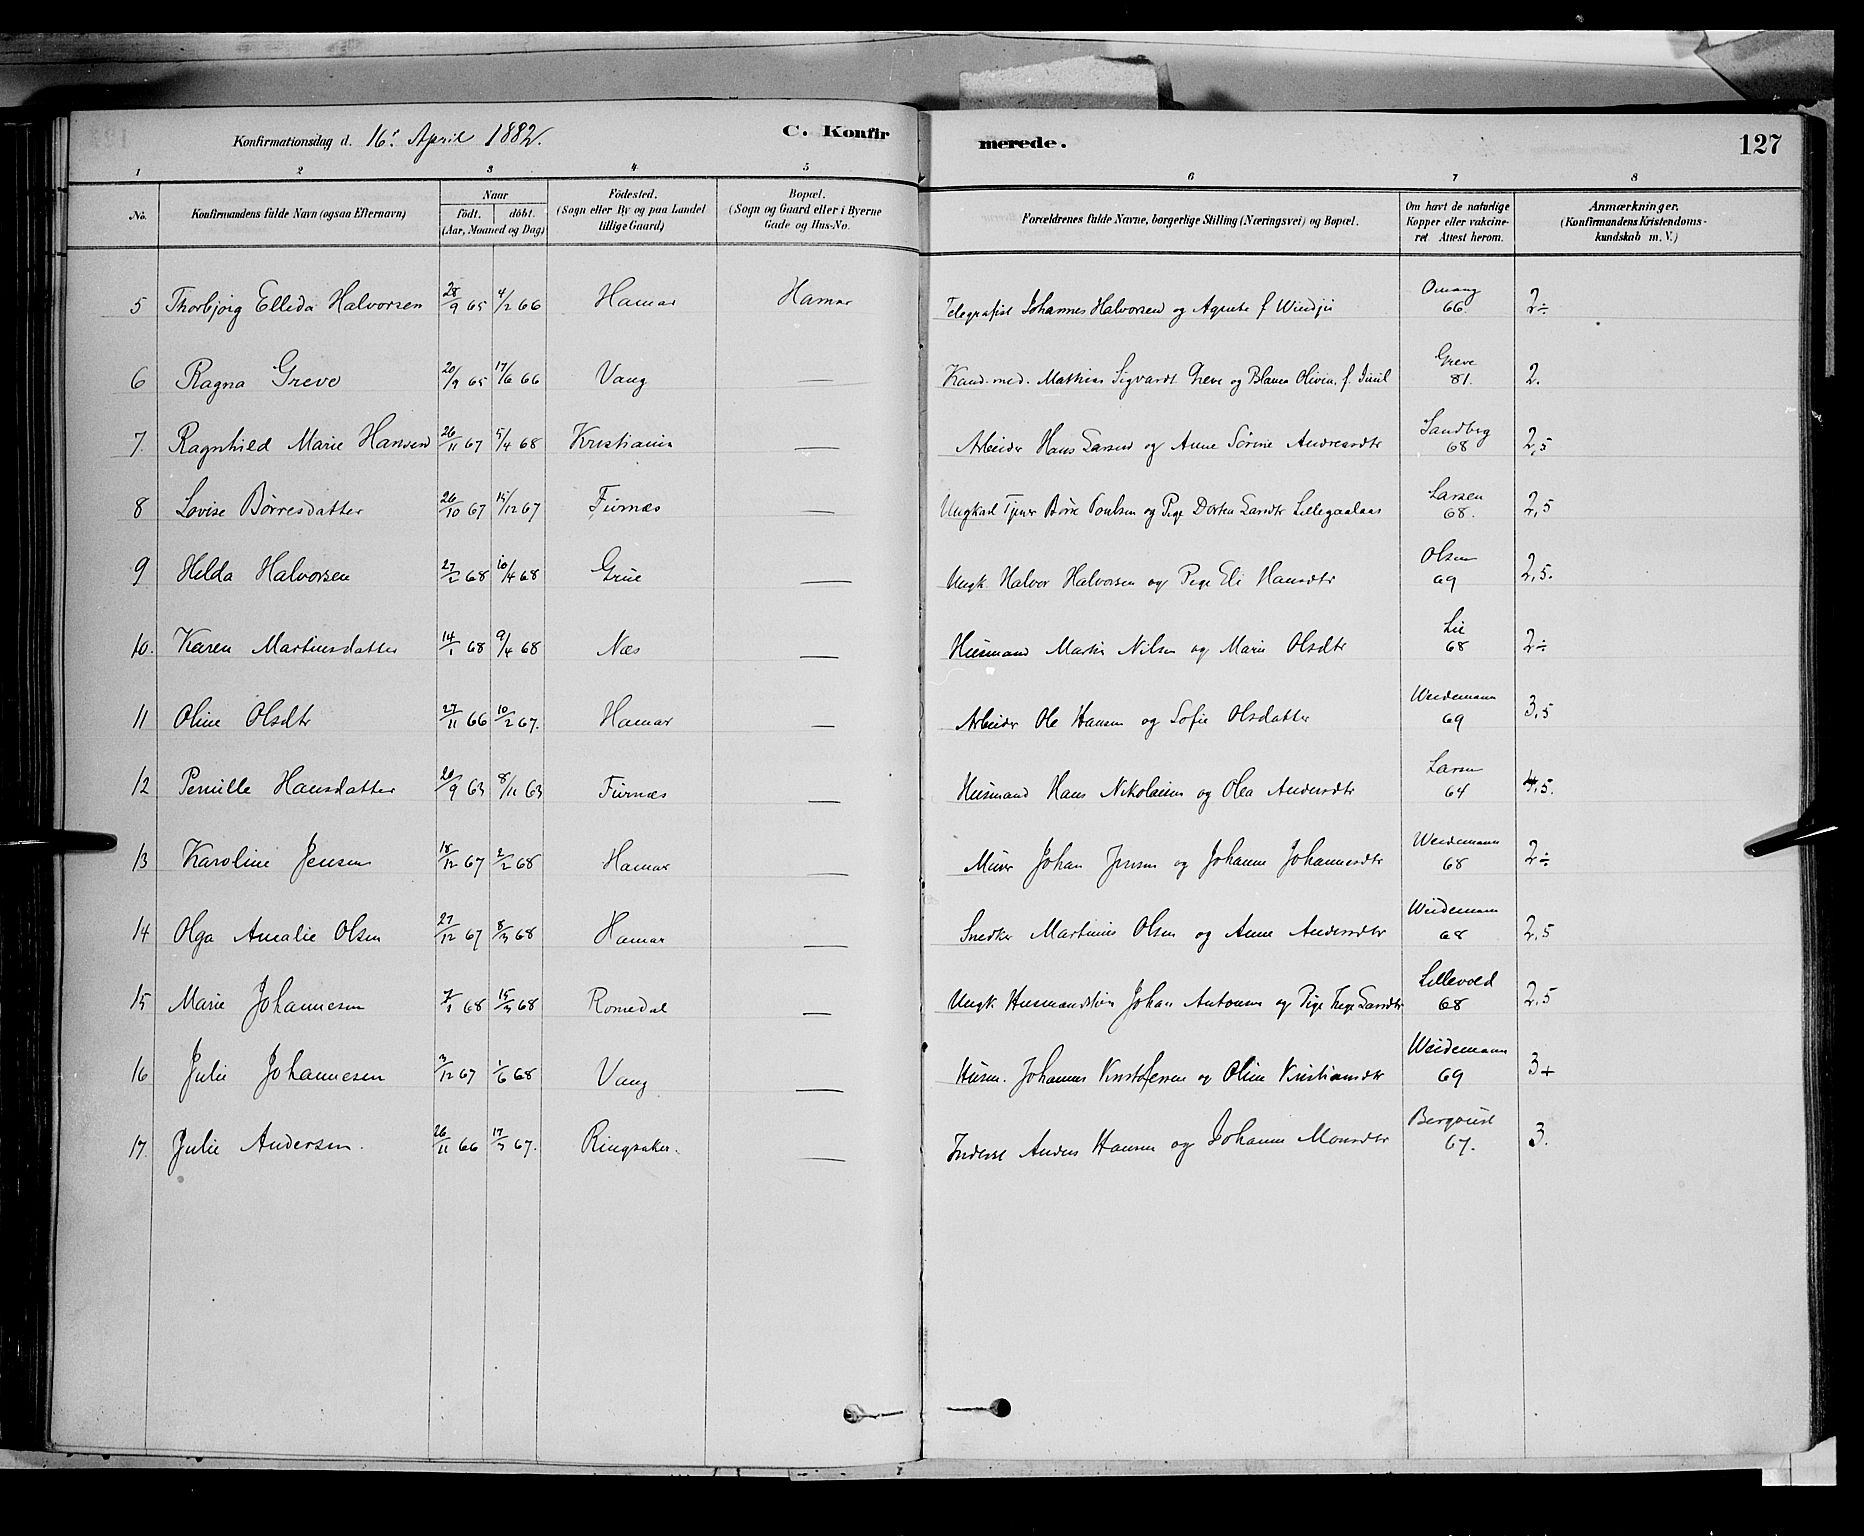 Konfirmationsdag d. 16' April 1882. C. Konfirmerede. 127
1 2 3 4 5 6 7 8
No. Konfirmandens fulde Navn (ogsaa Efternavn) Naar födt. döbt. (Aar, Maaned og Dag) Födested. (Sogn eller By og paa Landet tillige Gaard) Bopæl. (Sogn og Gaard eller i Byerne Gade og Hus-No. Forældrenes fulde Navne, borgerlige Stilling (Næringsvei) og Bopæl. Om havt de naturlige Kopper eller vakcineret. Attest herom. Anmærkninger. (Konfirmandens Kristendomskundskab m. V.)
5 Thorbjørg Elleda Halvorsen 28/9 65 4/2 66 Hamar Hamar Telegrafist Johannes Halvorsen og Agnete f. Omang 66 2÷
6 Ragna Greve 20/9 65 17/6 66 Vang — Kand. med. Mathias Sigvardt Greve og Blanca Olivia, f. Juul Greve 81. 2.
7. Ragnhild Marie Hansen 26/11 67 5/4 68 Kristiania — Arbeider Hans Larsen og Anne Sørine Andreasdtr Sandberg 68 2,5
8 Lovise Børresdatter 26/10 67 15/12 67 Furnæs — Ungkarl Tjener Børre Poulsen og Pige Dorten Larsdtr Larsen 68. 2,5
9 Helda Halvorsen 27/2 68 10/4 68 Grue — Ungk. Halvor Halvorsen og Pige Eli Hansdtr Olsen 69 2,5.
10. Karen Martinsdatter 14/1 68 9/4 68 Næs — Husmand Martin Nilsen og Marie Olsdtr Lie 68 2÷
11 Oline Olsdtr 27/11 66 10/2 67. Hamar — Arbeider Ole Hansen og Sofie Olsdatter Weidemann 69 3,5
12 Pernille Hansdatter 20/9 63 8/11 63 Furnæs — Husmand Hans Nikolaisen og Olea Andersdtr Larsen 64 4,5.
13 Karoline Jensen 18/12 67 2/2 68 Hamar — Murer Johan Jensen og Johanne Johannesdtr Weidemann 68 2÷
14 Olga Amalie Olsen 27/12 67 8/3 68 Hamar — Snedker Martinius Olsen og Anne Andersdtr Weidemann 68 2,5
15 Marie Johannesen 7/1 68 15/3 68 Romedal — Ungk. Johan Antonsen og Pige Larsdtr Lillevold 68 2,5
16 Julie Johannesen 3/12 67 1/6 68 Vang — Husm. Johannes Kristofersen og Oline Kristiansdtr Weidemann 69 3+
17. Julie Andersen. 26/11 66 17/3 67. Ringsaker. — Inderst Anders Hansen og Johanne Monsdtr Bergquist 67. 3.